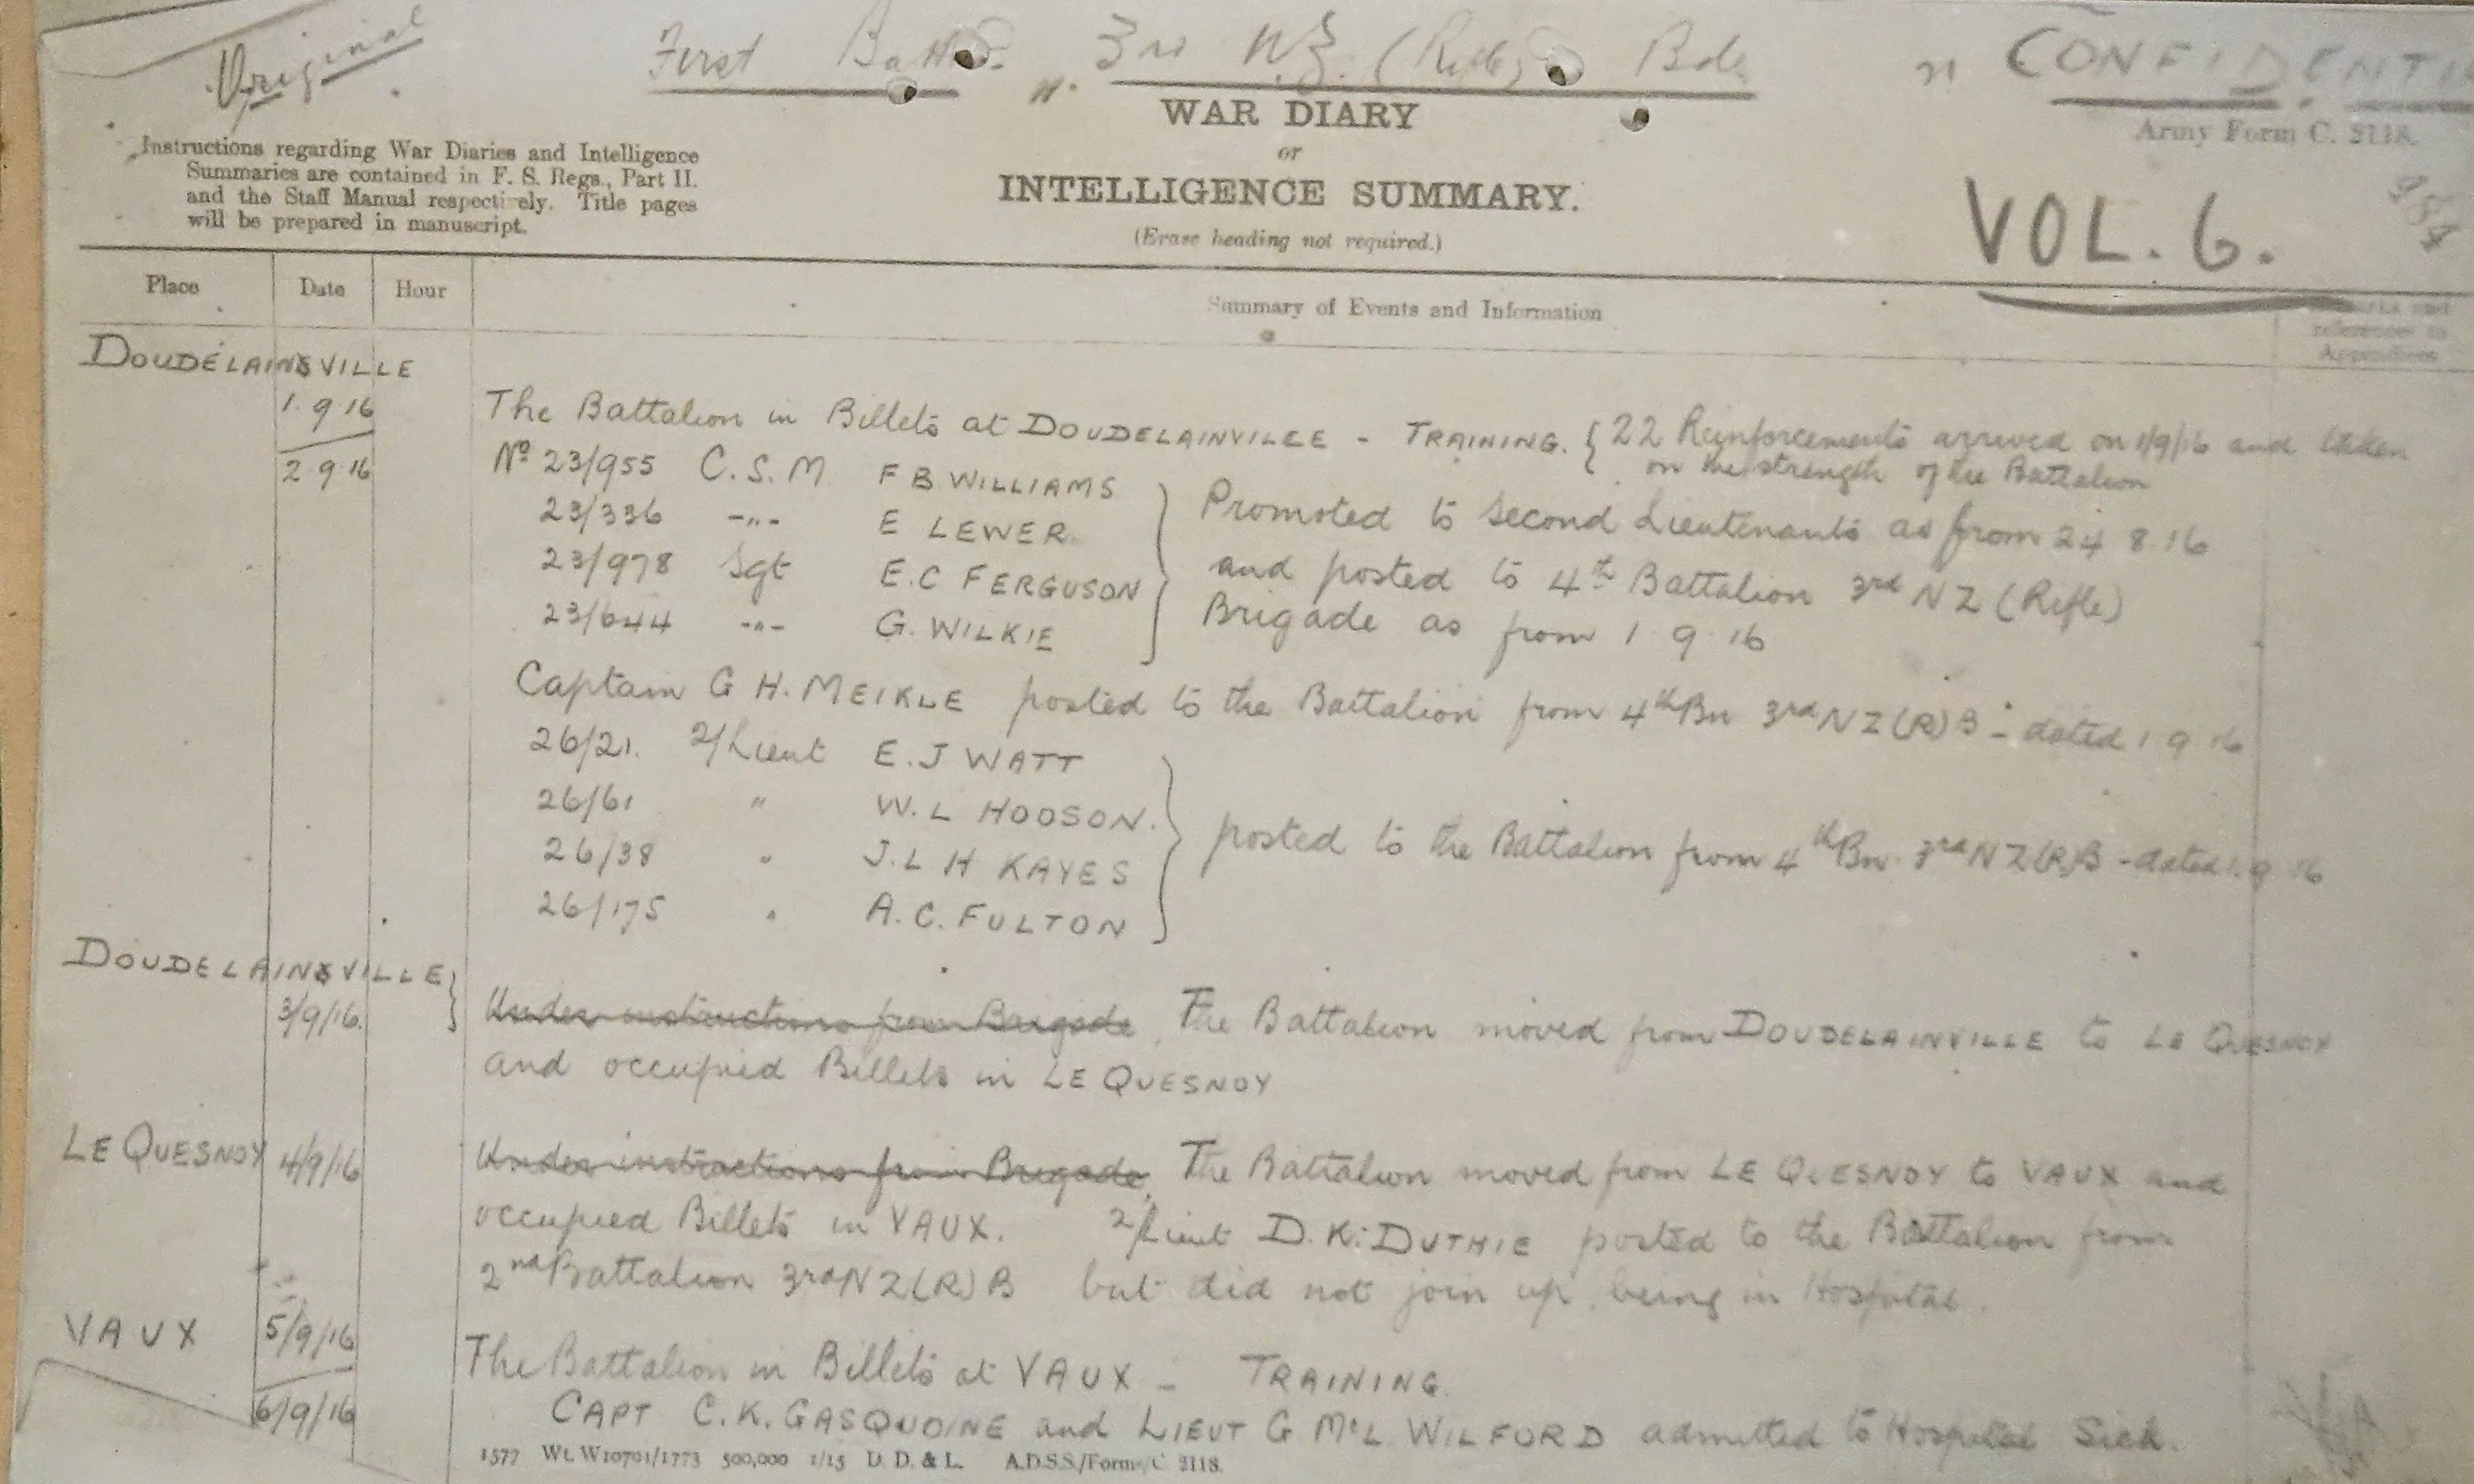 Original
First Battn. 3rd N.Z. (Rifle) Bde
CONFIDENTI
WAR DIARY
or
INTELLIGENCE SUMMARY.
(Erase heading not required.)
Army Form C. 2118.
VOL. 6.
Instructions regarding War Diaries and Intelligence
Summaries are contained in F. S. Regs., Part II.
and the Staff Manual respectively. Title pages
will be prepared in manuscript.
Place Date Hour Summary of Events and Information
references to
Appendices
DOUDELAINSVILLE
1.9.16 The Battalion in Billets at DOUDELAINVILLE - TRAINING. { 22 Reinforcements arrived on 1/9/16 and taken
on the strength of the Battalion
2 9 16 No 23/955 C.S.M. F B WILLIAMS } Promoted to Second Lieutenants as from 24 8 16
23/336 -"- E LEWER
23/978 Sgt E.C FERGUSON and posted to 4th Battalion 3rd NZ (Rifle)
23/644 -"- G. WILKIE Brigade as from 1 9 16
Captain G H. MEIKLE posted to the Battalion from 4th Bn 3rd NZ (R) B - dated 1 9 16
26/21. 2/Lieut E.J WATT
26/61 " W.L HODSON. } posted to the Battalion from 4th Bn. 3rd NZ(R)B - dated 1.9 16
26/38 " J.L H KAYES
26/175 " A.C. FULTON
DOUDELAINSVILLE }
3/9/16. Under instructions from Brigade, The Battalion moved from DOUDELAINVILLE to LE QUESNOY
and occupied Billets in LE QUESNOY
LE QUESNOY 4/9/16 Under instructions from Brigade, The Battalion moved from LE QUESNOY to VAUX and
occupied Billets in VAUX. 2/Lieut D.K. DUTHIE posted to the Battalion from
2nd Battalion 3rd NZ(R) B but did not join up, being in Hospital.
VAUX 5/9/16 The Battalion in Billets at VAUX - TRAINING.
6/9/16 CAPT C.K. GASQUOINE and LIEUT G McL WILFORD admitted to Hospital Sick.
1577 Wt. W10701/1773 500,000 1/15 D. D. & L. A.D.S.S./Forms/C. 2118.